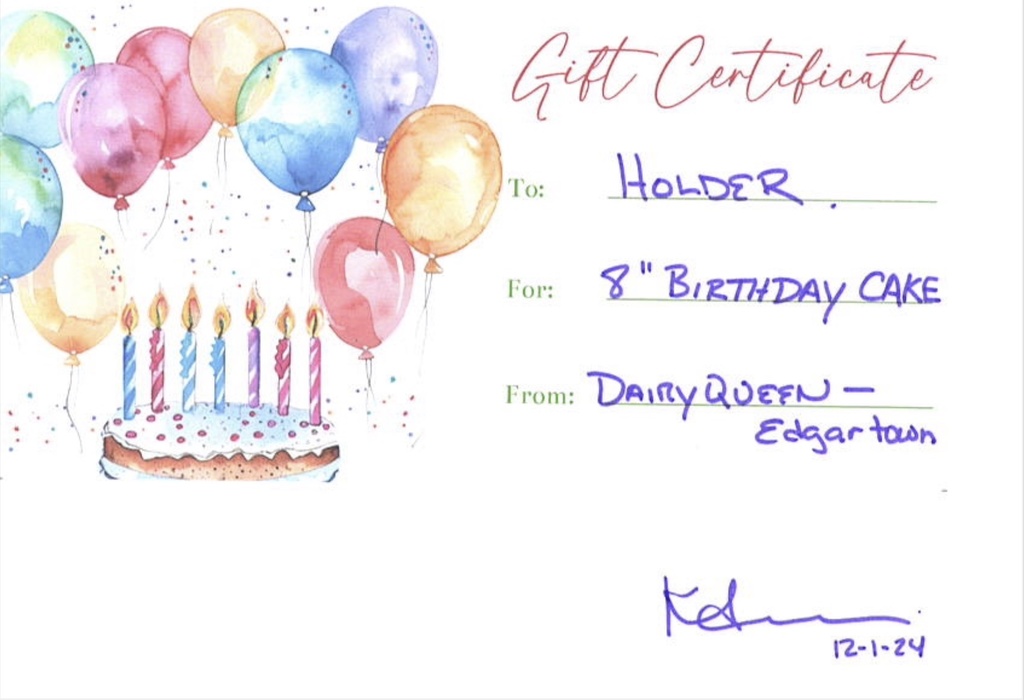 Gift Certificate
To: HOLDER.
For: 8" BIRTHDAY CAKE
From: DAIRY QUEEN –
Edgartown
12-1-24